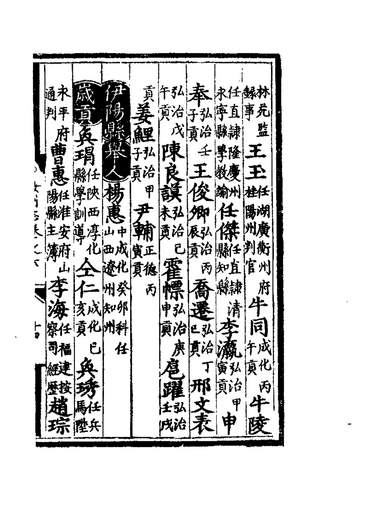 林苑監錄事 王玉 任湖廣衡州府桂陽州判官 牛同 成化丙午貢 牛陵
任直隷隆慶州永寧縣學教諭 任傑 任直隷清縣知縣 李瀛 弘治甲寅貢 申
奉 弘治壬子貢 王俊卿 弘治丙辰貢 喬遷 弘治丁巳貢 邢文表
弘治戊午貢 陳良謨 弘治己未貢 霍幖 弘治庚申貢 扈躍 弘治壬戌
貢 姜鯉 弘治甲子貢 尹輔 正德丙寅貢
伊陽縣舉人 楊惠 中成化癸卯科任山西遼州知州
歲貢 吳琄 任陝西淳化縣學訓導 仝仁 成化己亥貢 吳琇 任兵馬陞
永平府通判 曹惠 任淮安府山陽縣主簿 李海 任福建按察司經歷 趙琮